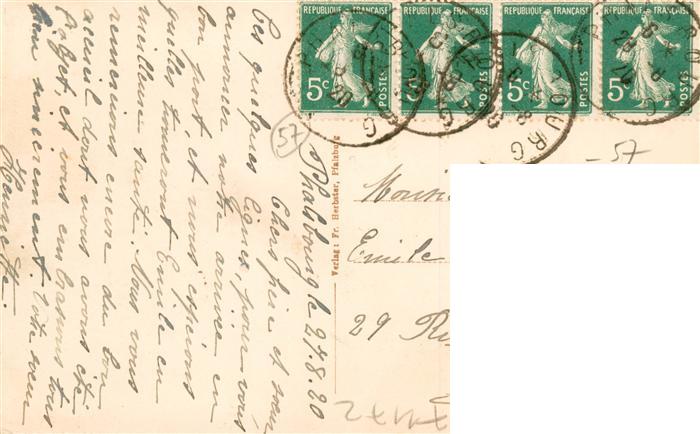 Phalsbourg le 27.8.20
Chers frère et sœur
Ces quelques lignes, pour vous
annoncer notre arrivée en
bon port, et nous espérons
qu'elles trouveront Emile en
meilleure santé. Nous vous
remercions encore du bon
accueil dont nous avons été
l'objet, et vous embrassons tous
bien sincèrement Votre sœur
Henriette.
Verlag: Fr. Herbster, Pfalzburg
57
REPUBLIQUE FRANÇAISE
5c
POSTES
REPUBLIQUE FRANÇAISE
POSTES
REPUBLIQUE FRANÇAISE
5c
POSTES
REPUBLIQUE FRANÇAISE
5c
POSTES
-57
Emile
29